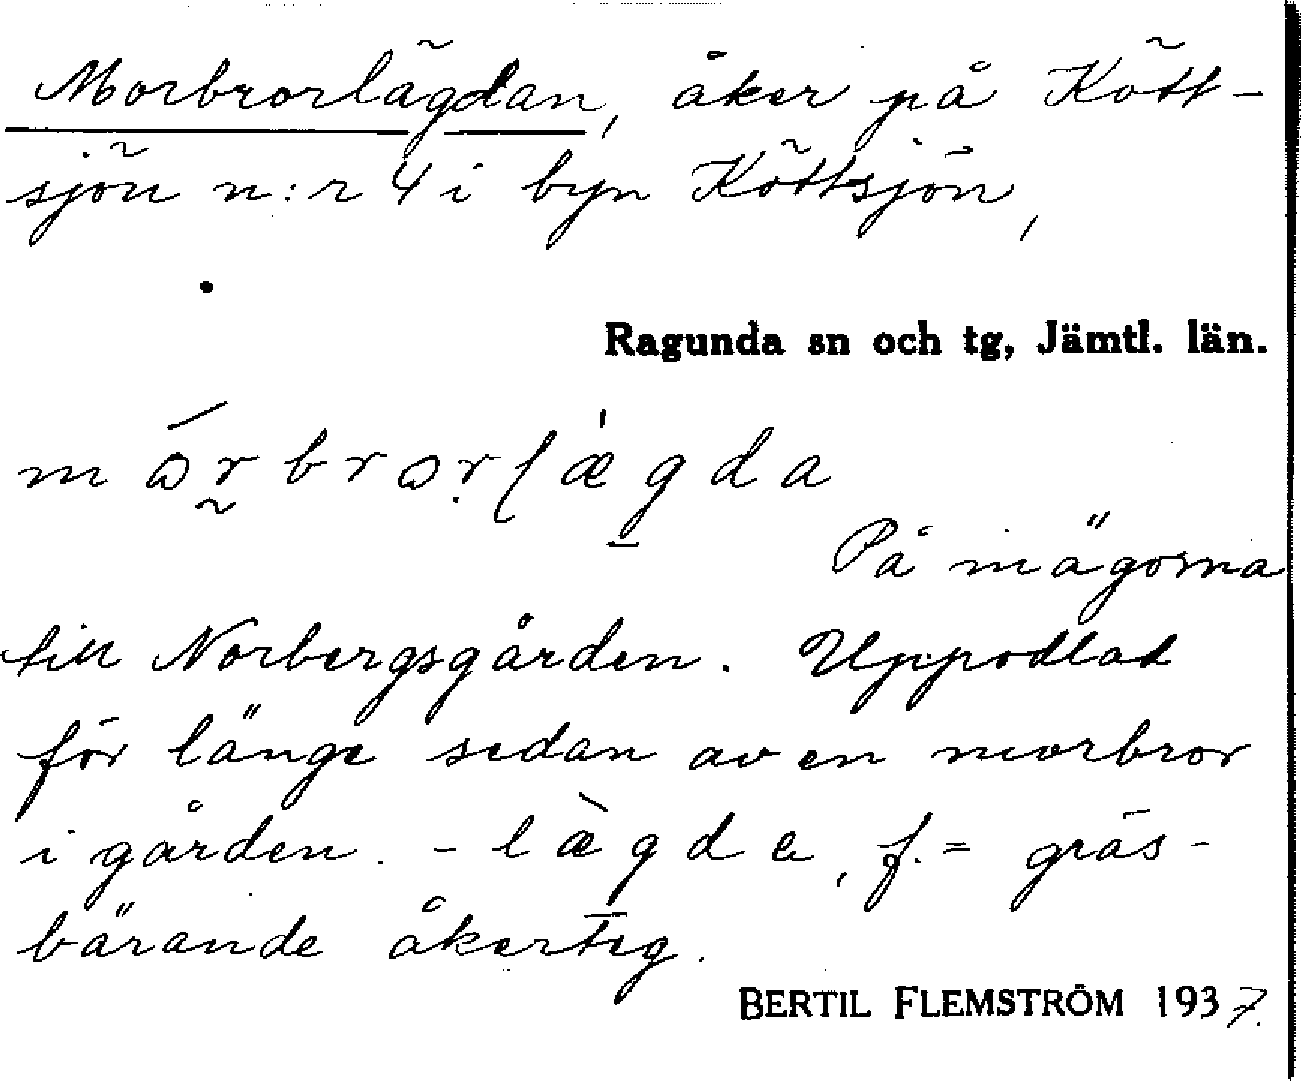 Morbrorlägdan, åker på Kött-
sjön n:r 4 i byn Köttsjön,
Ragunda sn och tg, Jämtl. län.
På mägorna
till Norbergsgården. Uppodlad
för länge sedan av en morbror
i gården. - lægda, f. = gräs-
bärande åkerteg.
BERTIL FLEMSTRÖM 1937.